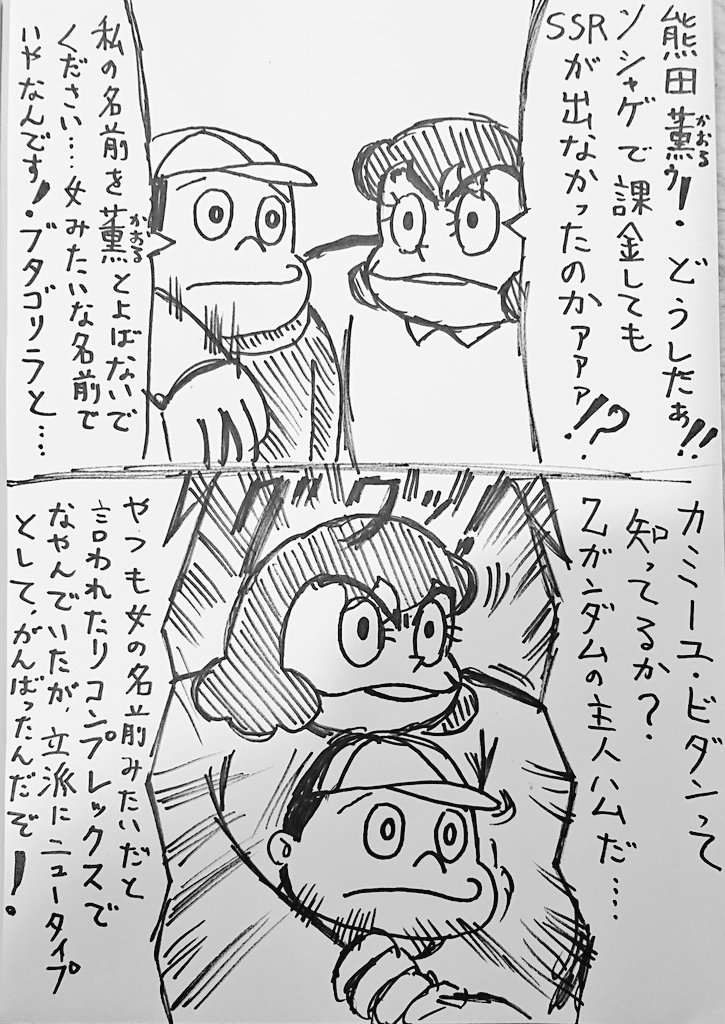 熊田薫ゥ!どうしたぁ!!
かおる
ソシャゲで課金しても
SSRが出なかったのかァァァ!?
私の名前を薫とよばないで
かおる
ください…女みたいな名前で
いやなんです!ブタゴリラと…
カミーユ・ビダンって
知ってるか?
Zガンダムの主人ハムだ……
やつも女の名前みたいだと
言われたりコンプレックスで
なやんでいたが、立派にニュータイプ
として、がんばったんだぞ!